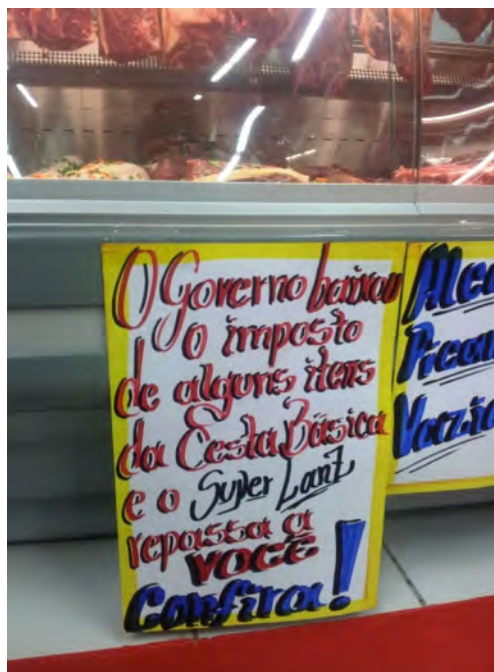 O Governo baixou
o imposto
de alguns itens
da Cesta Básica
e o Super Lanz
repassa a
VOCÊ
Confira!